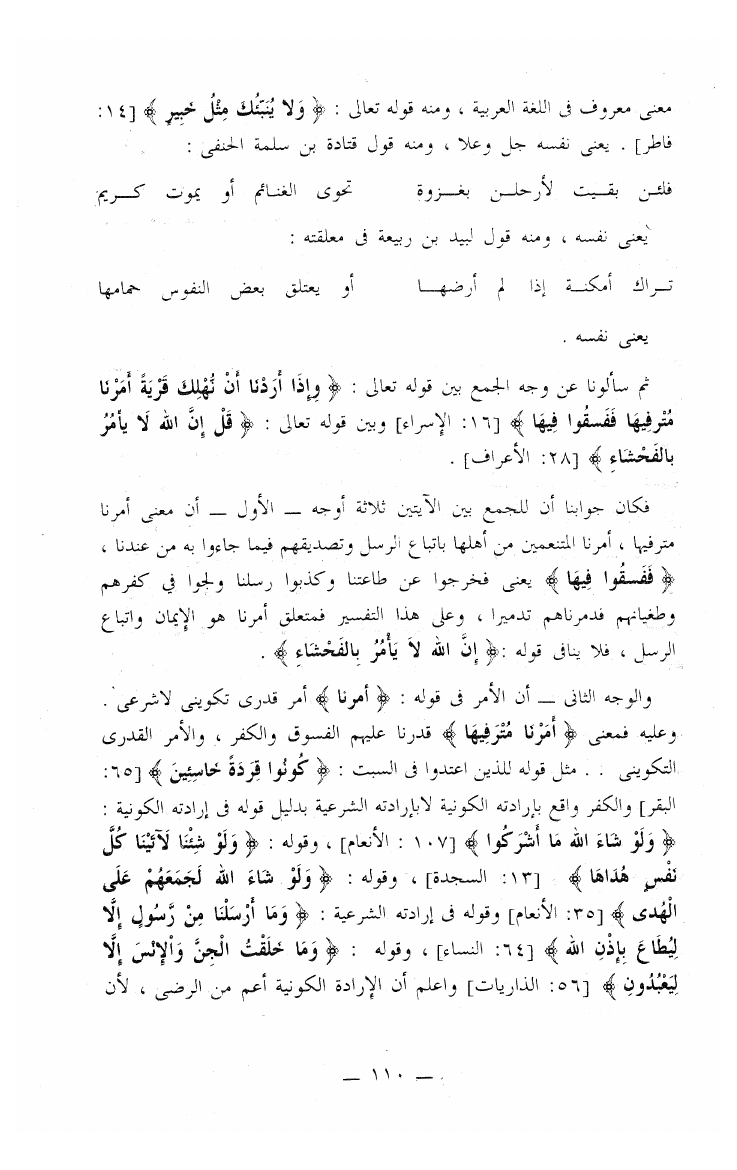 معنى معروف فى اللغة العربية ، ومنه قوله تعالى : ﴿ وَلا يُنَبِّئُكَ مِثْلُ خَبِيرٍ ﴾ [١٤:
فاطر] . يعنى نفسه جل وعلا ، ومنه قول قتادة بن سلمة الحنفى :
فلئـن بقـيت لأرحلـن بغـزوة تحوى الغنـائم أو يموت كـريم
يعنى نفسه ، ومنه قول لبيد بن ربيعة فى معلقته :
تـراك أمكنـة إذا لم أرضهـا أو يعتلق بعض النفوس حمامها
يعنى نفسه .
ثم سألونا عن وجه الجمع بين قوله تعالى : ﴿ وإِذَا أَرَدْنَا أَنْ نُهْلِكَ قَرْيَةً أَمَرْنَا
مُتْرفِيهَا فَفَسقُوا فِيهَا ﴾ [١٦: الإسراء] وبين قوله تعالى : ﴿ قُلْ إِنَّ الله لَا يأمُرُ
بالفَحْشَاءِ ﴾ [٢٨: الأعراف] .
فكان جوابنا أن للجمع بين الآيتين ثلاثة أوجه ــ الأول ــ أن معنى أمرنا
مترفيها ، أمرنا المتنعمين من أهلها باتباع الرسل وتصديقهم فيما جاءوا به من عندنا ،
﴿ فَفَسقُوا فِيهَا ﴾ يعنى فخرجوا عن طاعتنا وكذبوا رسلنا ولجوا في كفرهم
وطغيانهم فدمرناهم تدميرا ، وعلى هذا التفسير فمتعلق أمرنا هو الإيمان واتباع
الرسل ، فلا ينافى قوله :﴿ إِنَّ الله لاَ يَأْمُرُ بِالفَحْشَاءِ ﴾ .
والوجه الثانى ــ أن الأمر فى قوله : ﴿ أمرنا ﴾ أمر قدرى تكوينى لاشرعى .
وعليه فمعنى ﴿ أَمَرْنَا مُتْرَفِيهَا ﴾ قدرنا عليهم الفسوق والكفر ، والأمر القدرى
التكوينى . . مثل قوله للذين اعتدوا فى السبت : ﴿ كُونُوا قِرَدَةً خَاسِئِينَ ﴾ [٦٥:
البقر] والكفر واقع بإرادته الكونية لابإرادته الشرعية بدليل قوله فى إرادته الكونية :
﴿ وَلَوْ شَاءَ الله مَا أَشْرَكُوا ﴾ [١٠٧ : الأنعام] ، وقوله : ﴿ وَلَوْ شِئْنَا لَآتَيْنَا كُلَّ
نَفْسٍ هُدَاهَا ﴾ [١٣: السجدة] ، وقوله : ﴿ وَلَوْ شَاءَ الله لَجَمَعَهُمْ عَلَى
الْهُدى ﴾ [٣٥: الأنعام] وقوله فى إرادته الشرعية : ﴿ وَمَا أَرْسَلْنَا مِنْ رَّسُولٍ إِلَّا
لِيُطَاعَ بِإِذْنِ الله ﴾ [٦٤: النساء] ، وقوله : ﴿ وَمَا خَلَقْتُ الْجِنَّ وَالإِنْسَ إِلَّا
لِيَعْبُدُونِ ﴾ [٥٦: الذاريات] واعلم أن الإرادة الكونية أعم من الرضى ، لأن
ــ ١١٠ ــ